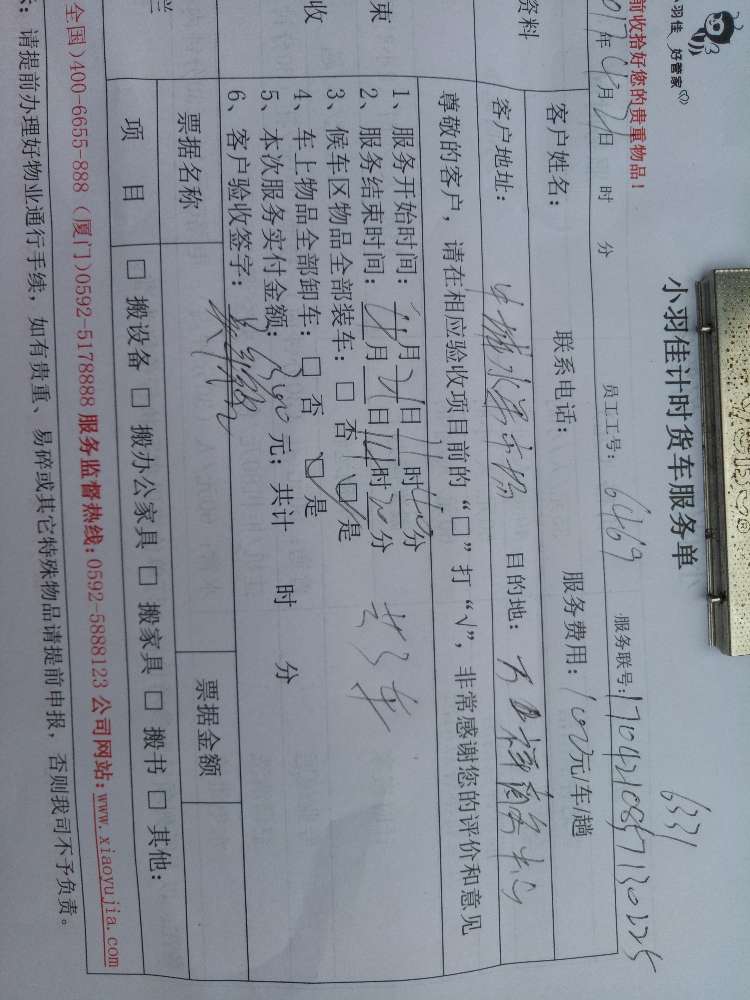 小羽佳 好管家
小羽佳计时货车服务单
6331
前收拾好您的贵重物品!
年4月21日 时 分 员工工号: 6469 服务联号: 1704210857130225
资料
客户姓名: 联系电话: 服务费用: 100元/车/趟
客户地址: 目的地:
尊敬的客户, 请在相应验收项目前的“□”打“√”, 非常感谢您的评价和意见
束
收
1、服务开始时间: 月21日11时40分
2、服务结束时间: 4月 日14时20分
3、候车区物品全部装车: □ 否 □ 是
共3车
4、车上物品全部卸车: □ 否 □ 是
5、本次服务实付金额: 300 元; 共计 时 分
6、客户验收签字:
票据名称 票据金额
栏
项 目 □ 搬设备 □ 搬办公家具 □ 搬家具 □ 搬书 □ 其他:
全国)400-6655-888 (厦门)0592-5178888 服务监督热线:0592-5888123 公司网站:www.xiaoyujia.com
: 请提前办理好物业通行手续, 如有贵重、易碎或其它特殊物品请提前申报, 否则我司不予负责。